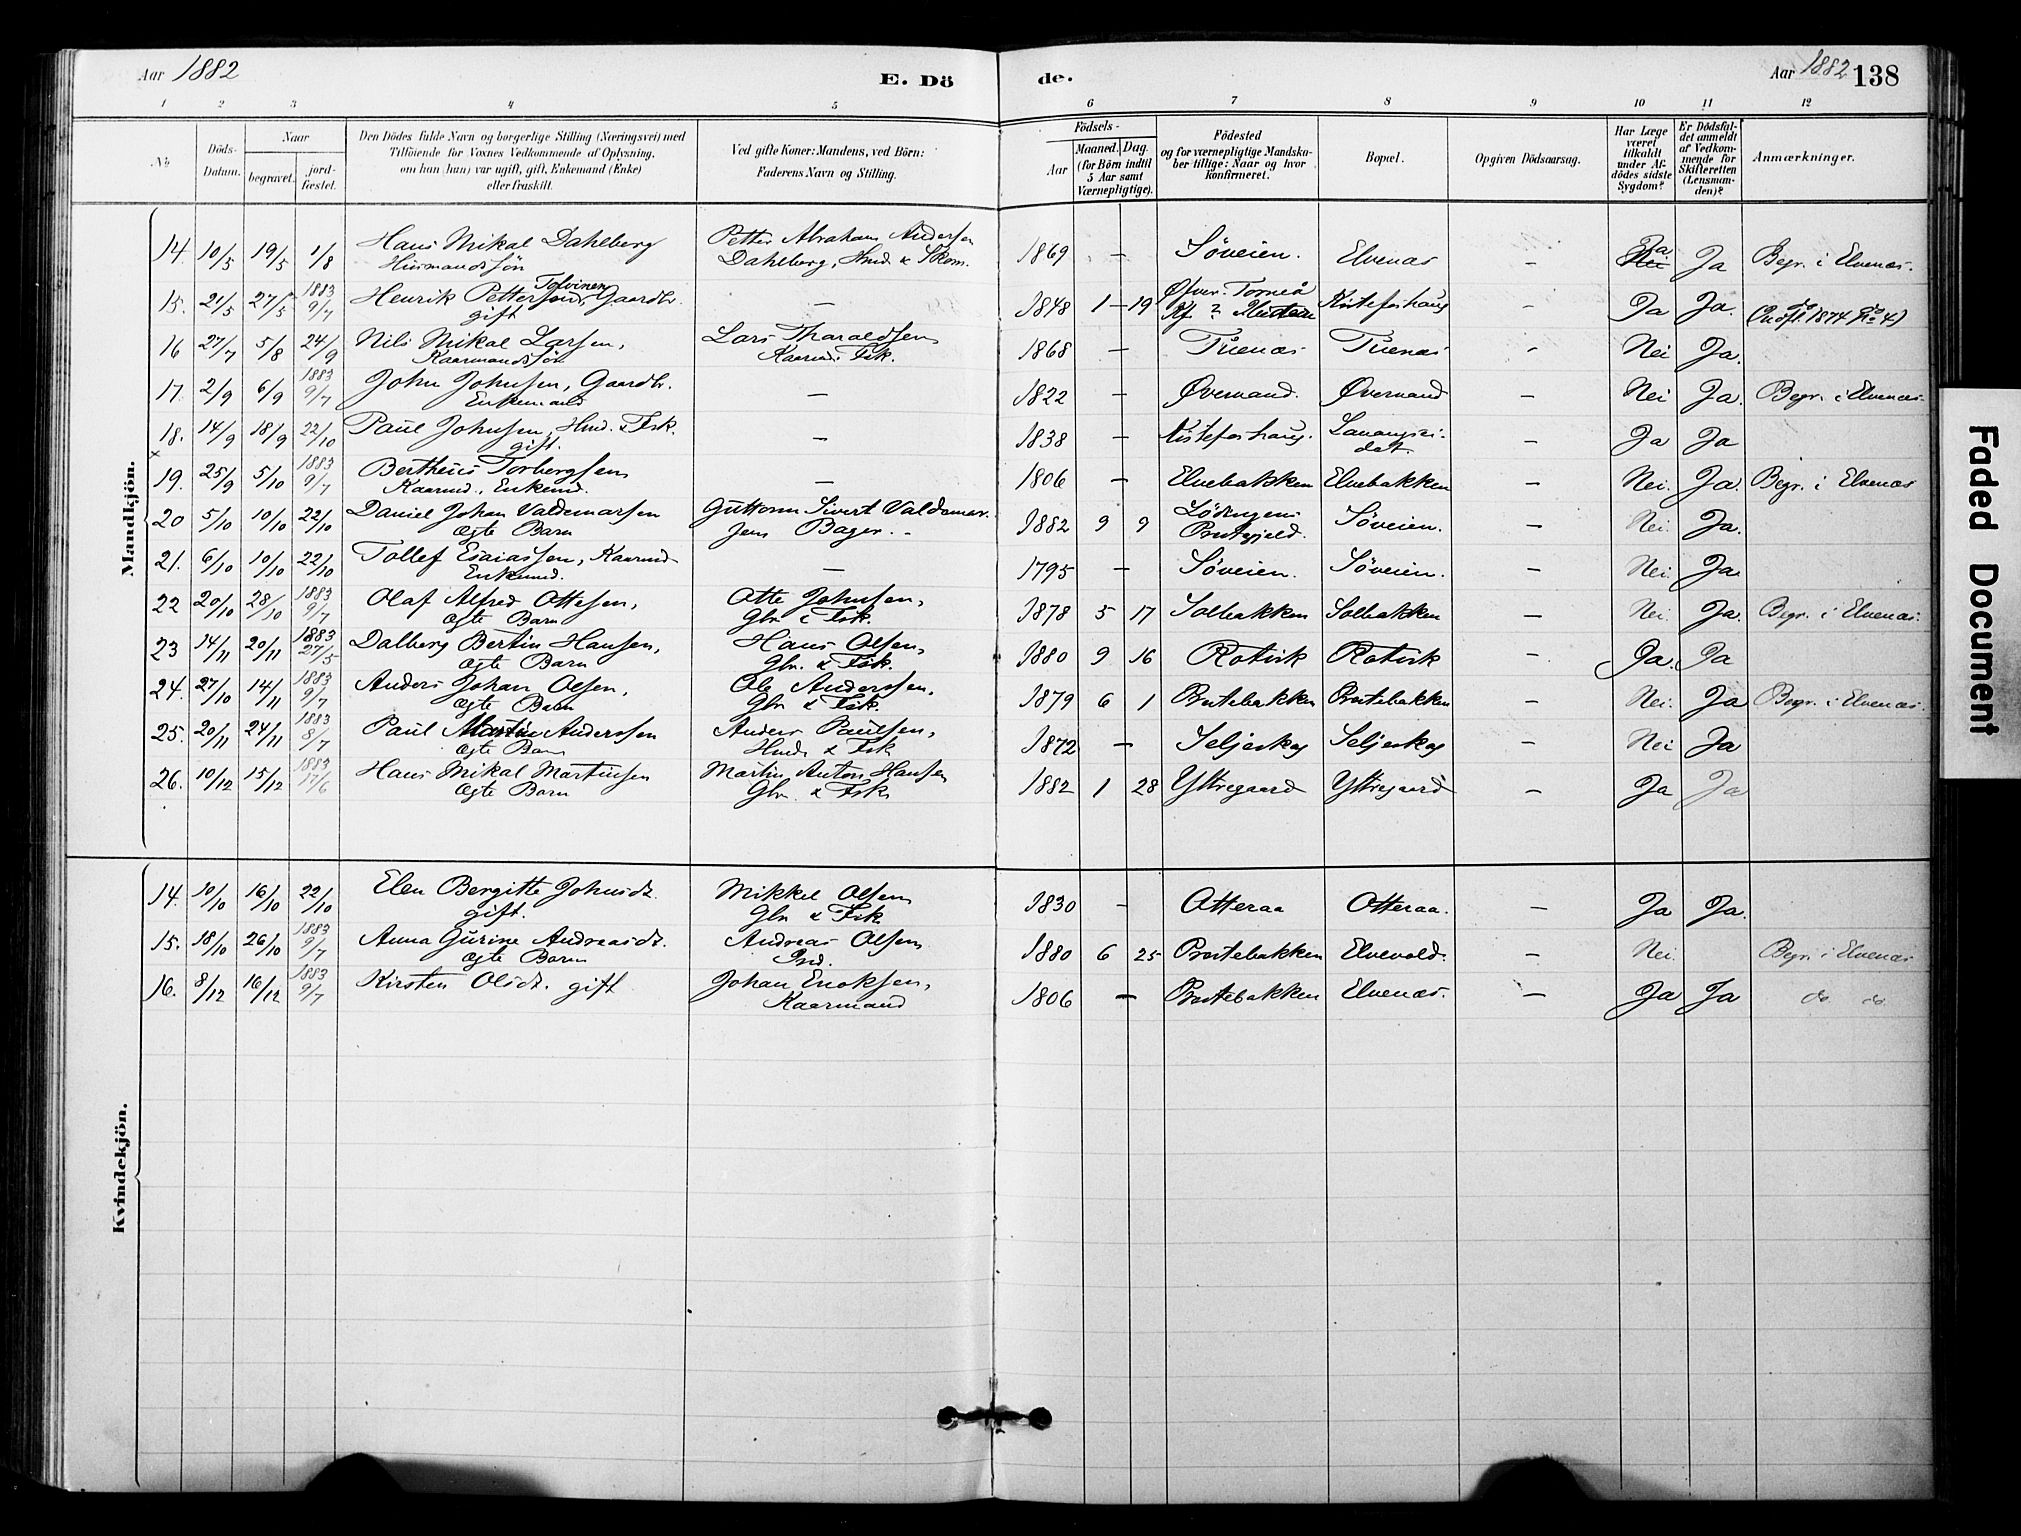 Aar 1882 E. Dö de. Aar 1882 138
1 2 3 4 5 6 7 8 9 10 11 12
No
Döds-
Datum.
Naar
begravet.
jord-
fæstet.
Den Dödes fulde Navn og borgerlige Stilling (Næringsvei) med
Tilföiende for Voxnes Vedkommende af Oplysning,
om han (hun) var ugift, gift, Enkemand (Enke)
eller fraskilt.
Ved gifte Koner: Mandens, ved Börn:
Faderens Navn og Stilling.
Födsels-
Aar
Maaned. Dag.
(for Börn indtil
5 Aar samt
Værnepligtige).
Födested
og for værnepligtige Mandska-
ber tillige: Naar og hvor
konfirmeret.
Bopæl.
Opgiven Dödsaarsag.
Har Læge
været
tilkaldt
under Af-
dödes sidste
Sygdom?
Er Dödsfal-
det anmeldt
af Vedkom-
mende for
Skifteretten
(Lensman-
den)?
Anmærkninger.
Mandkjön.
14. 10/5 19/5 1/8 Hans Mikal Dahlberg Petter Abraham Andersen 1869 — Söveien. Elvenæs — Nei Ja. Ja Begr. i Elvenæs.
Husmandssön Dahlberg, Hmd. & Skom.
15. 21/5 27/5 1883 9/7 Henrik Pettersen Tolvinen, Gaardbr. — 1848 1 — 19 Öfver-Torneå Kistefoshaug — Ja Ja.
gift
16 27/7 5/8 24/9 Nils Mikal Larsen, Lars Tharaldsen 1868 — Tuenæs Tuenæs - Nei Ja.
Kaarmandssön Kaarmd. Fisk.
17. 2/9 6/9 1883 9/7 John Johnsen, Gaardbr. — 1822 — Övermand. Övermand — Nei Ja. Begr. i Elvenæs.
Enkemand
18. 14/9 18/9 22/10 Paul Johnsen, Hmd. & Fsk. — 1838 — Kistefoshaug. Lavangsei- — Ja Ja
gift. det.
x
19. 25/9 5/10 1883 9/7 Bertheus Torbergsen — 1806 — Elvebakken Elvebakken — Nei. Ja. Begr. i Elvenæs
Kaarmd., Enkemd.
20 5/10 10/10 22/10 Daniel Johan Valdemarsen Guttorm Sivert Valdemar- 1882 9 9 Lödingens Söveien. — Nei. Ja.
ægte Barn sen Bager. - Prestegjeld.
21. 6/10 10/10 22/10 Tollef Esaiassen, Kaarmd. — 1795 — Söveien. Söveien. — Nei. Ja.
Enkemd.
22 20/10 28/10 1883 9/7 Olaf Alfred Ottesen, Otte Johnsen, 1878 5 17 Solbakken Solbakken — Nei. Ja. Begr. i Elvenæs.
ægte Barn Gbr. & Fsk.
23 14/11 20/11 1883 27/5 Dalberg Bertin Hansen, Hans Olsen, 1880 9 16 Rotvik Rotvik - Ja. Ja
ægte Barn Gbr. & Fsk.
24. 27/10 14/11 1883 9/7 Anders Johan Olsen, Ole Anderssen, 1879 6 1 Prestebakken Prestebakken — Nei. Ja Begr. i Elvenæs.
ægte Barn Gbr. & Fsk.
25. 20/11 24/11 1883 8/7 Paul Martin Anderssen Anders Paulsen, 1872 — Seljeskog Seljeskog — Nei Ja
ægte Barn Hmd. & Fsk
26. 10/12 15/12 1883 17/6 Hans Mikal Martinsen Martin Anton Hansen 1882 1 28 Yttregaard Yttregaard — Ja Ja
ægte Barn Gbr. & Fsk
Kvindekjön.
14. 10/10 16/10 22/10 Elen Bergitte Johnsdt. Mikkel Olsen 1830 — Otteraa Otteraa. — Ja Ja.
gift. Gbr & Fsk
15. 18/10 26/10 1883 9/7 Anna Gurine Andreasdt. Andreas Olsen 1880 6 25 Prestebakken Elvevold. — Nei. Begr. i Elvenæs
ægte Barn Ind.
16. 8/12 16/12 1883 9/7 Kirsten Olsdt. gift Johan Enoksen, 1806 — Prestebakken Elvenæs. — Ja Ja do do.
Kaarmand
Faded Document